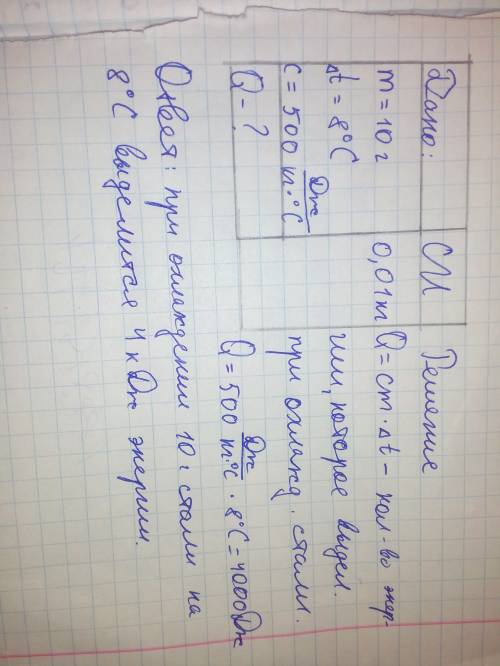 Дано:
m = 10 г
Δt = 8°C
c = 500 Дж/m·°C
Q - ?
СИ
0,01 m
Решение
Q = cm·Δt - кол-во энер-
гии, которое выдел.
при охлажд. стали.
Q = 500 Дж/m·°C · 8°C = 4000 Дж
Ответ: при охлаждении 10 г стали на
8°C выделится 4 кДж энергии.